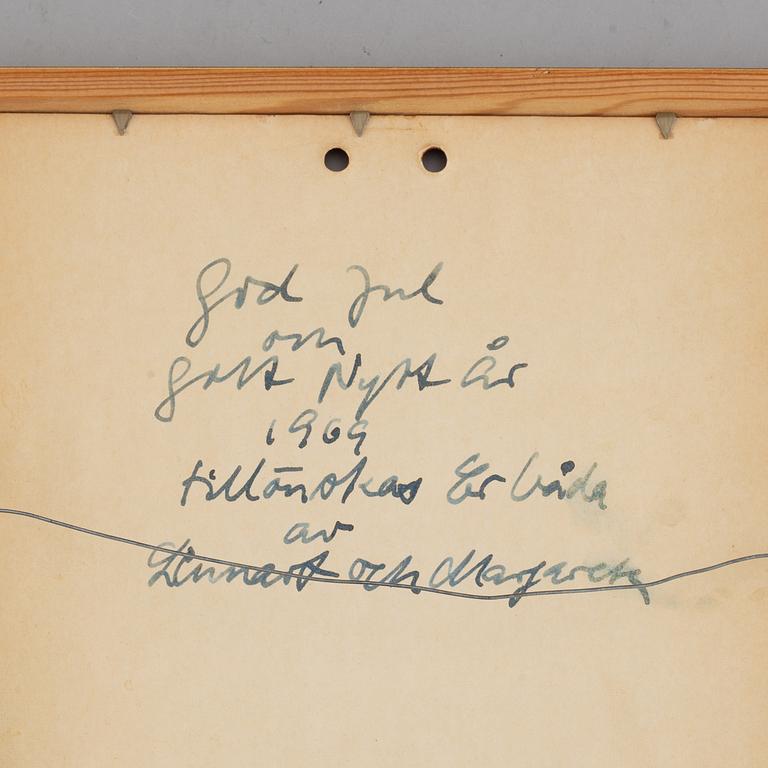 God Jul
om
Gott Nytt År
1969
tillönskas Er båda
av
Lennart och Margareta